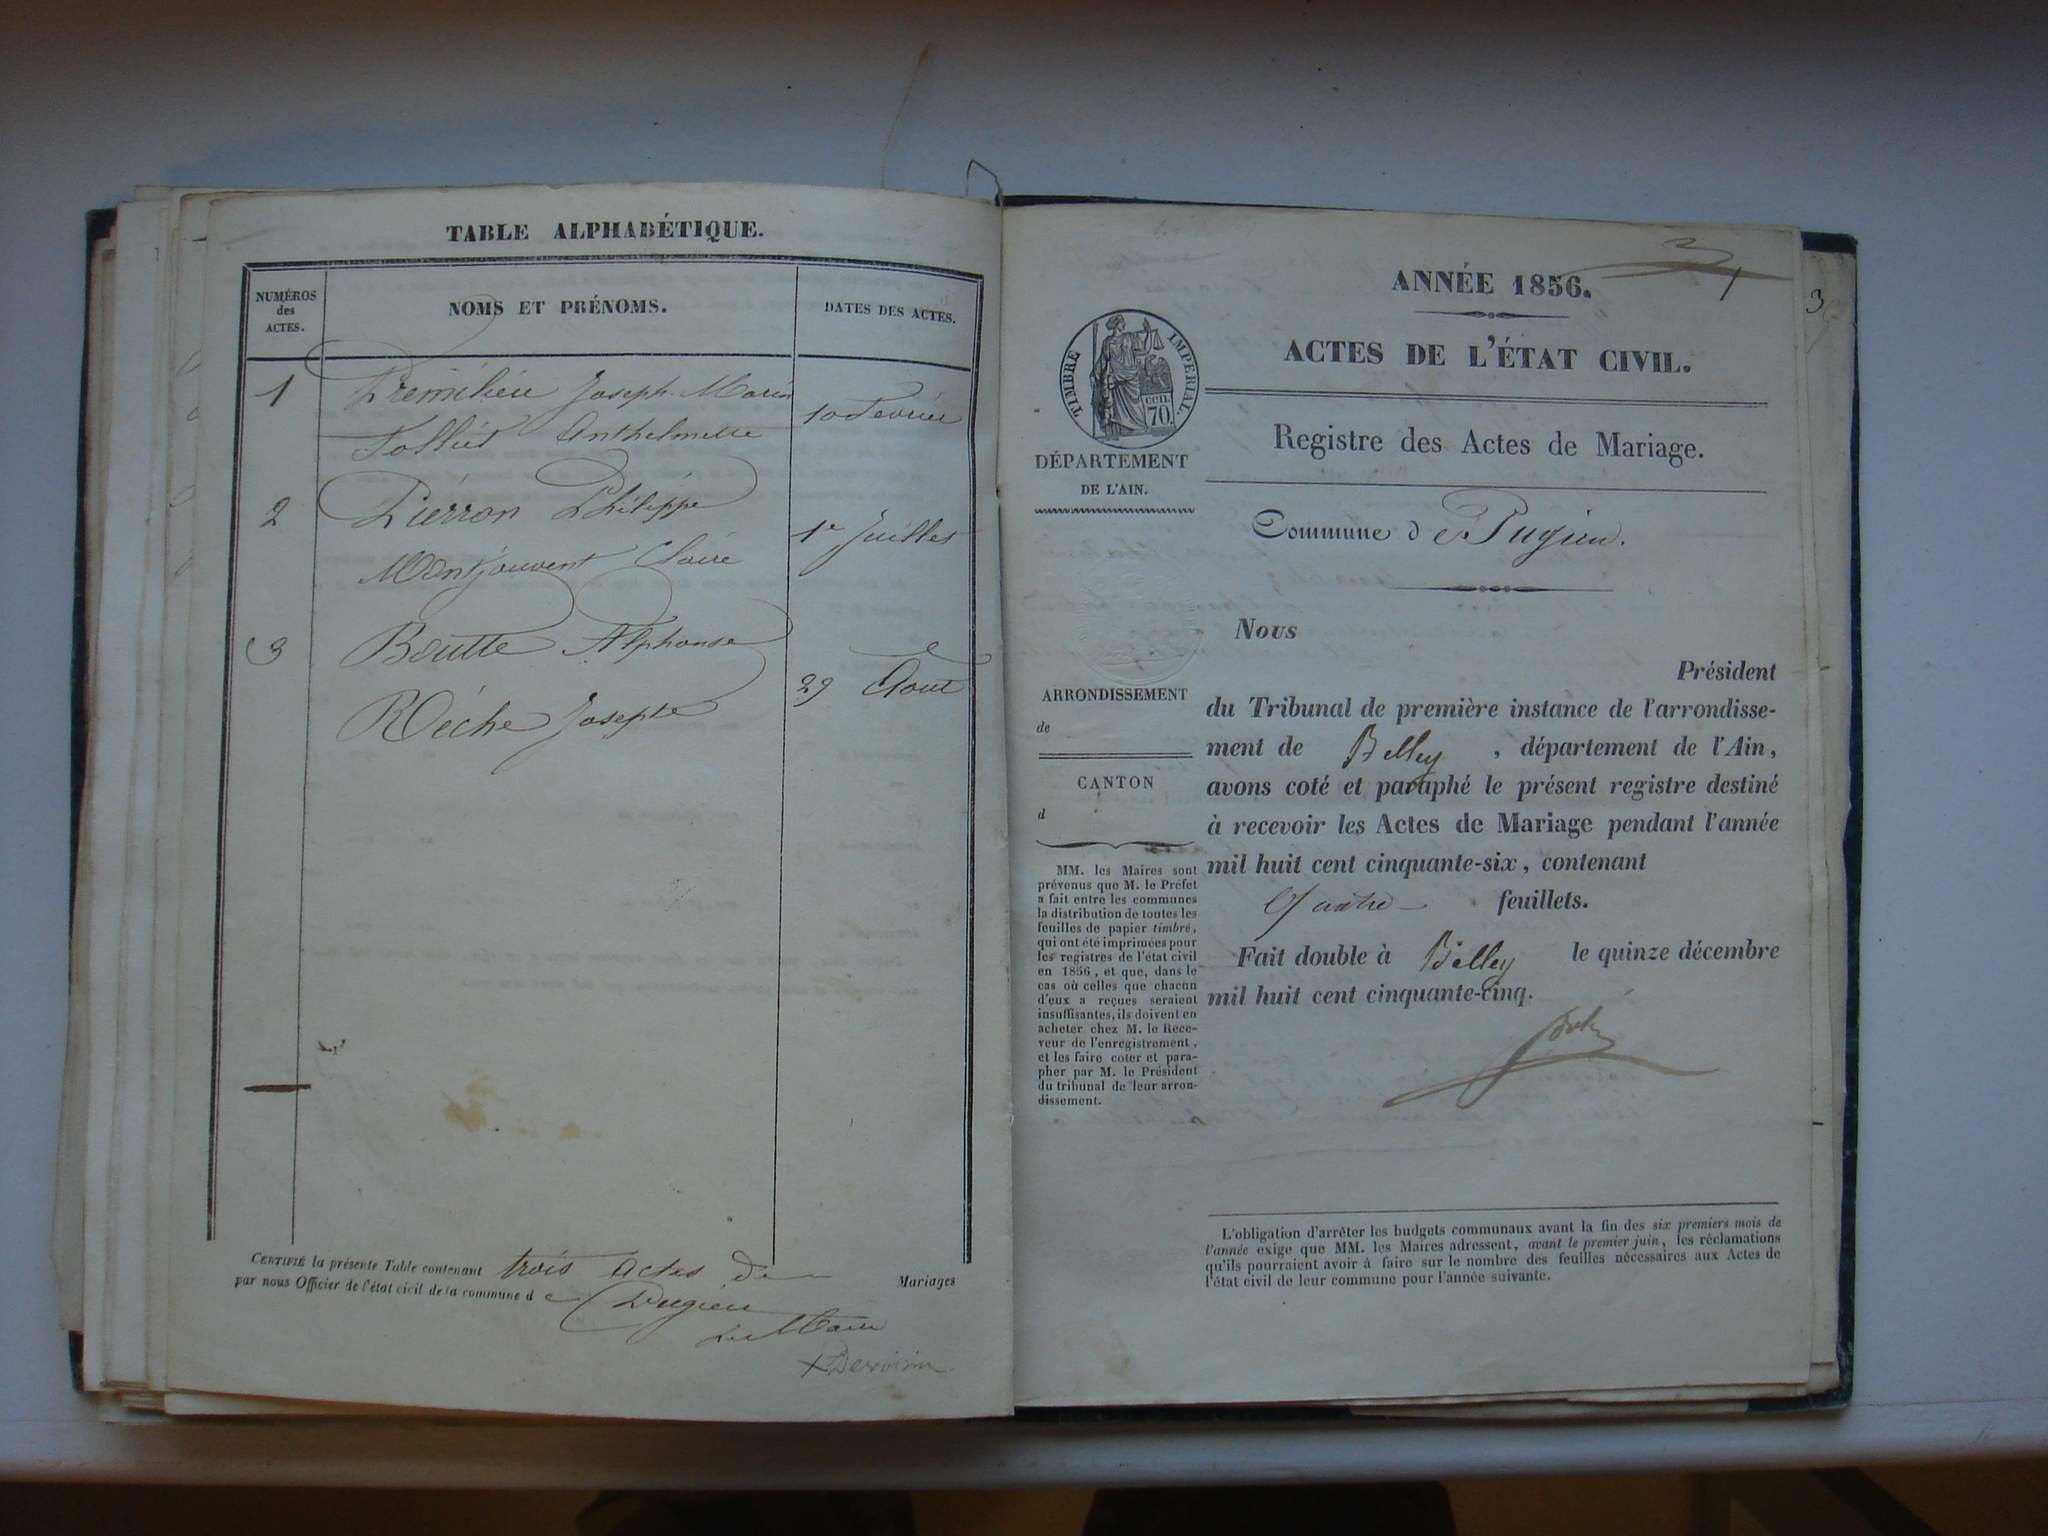 TABLE ALPHABÉTIQUE.
NUMÉROS
des
ACTES.
NOMS ET PRÉNOMS.
DATES DES ACTES.
1
Premilieu Joseph Marin
10 Fevrier
Tolliet Anthelmette
2
Pierron Philippe
1e Juillet
Montjouvent Claire
3
Boutte Alphonse
29 Aout
Réche Josepte
CERTIFIÉ la présente Table contenant trois actes de Mariages
par nous Officier de l'état civil de la commune d e Pugieu
Le Maire
ANNÉE 1856.
1
ACTES DE L'ÉTAT CIVIL.
TIMBRE IMPERIAL.
CCIL
70.
Registre des Actes de Mariage.
DÉPARTEMENT
DE L'AIN.
Commune d e Pugieu.
Nous
Président
du Tribunal de première instance de l'arrondisse-
ment de Belley, département de l'Ain,
avons coté et paraphé le présent registre destiné
à recevoir les Actes de Mariage pendant l'année
mil huit cent cinquante-six, contenant
Quatre feuillets.
Fait double à Belley le quinze décembre
mil huit cent cinquante-cinq.
ARRONDISSEMENT
de
CANTON
d
MM. les Maires sont
prévenus que M. le Préfet
a fait entre les communes
la distribution de toutes les
feuilles de papier timbré,
qui ont été imprimées pour
les registres de l'état civil
en 1856, et que, dans le
cas où celles que chacun
d'eux a reçues seraient
insuffisantes, ils doivent en
acheter chez M. le Rece-
veur de l'enregistrement,
et les faire coter et para-
pher par M. le Président
du tribunal de leur arron-
dissement.
L'obligation d'arrêter les budgets communaux avant la fin des six premiers mois de
l'année exige que MM. les Maires adressent, avant le premier juin, les réclamations
qu'ils pourraient avoir à faire sur le nombre des feuilles nécessaires aux Actes de
l'état civil de leur commune pour l'année suivante.
3